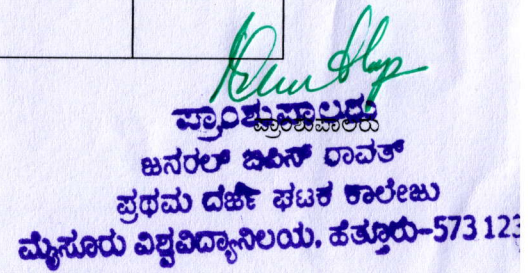 ಪ್ರಾಂಶುಪಾಲರು
ಪ್ರಾಂಶುಪಾಲರು
ಜನರಲ್ ಬಿಪಿನ್ ರಾವತ್
ಪ್ರಥಮ ದರ್ಜೆ ಘಟಕ ಕಾಲೇಜು
ಮೈಸೂರು ವಿಶ್ವವಿದ್ಯಾನಿಲಯ, ಹೆತ್ತೂರು-573 123